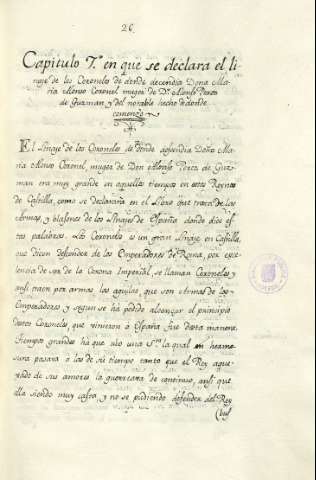 26.
Capitulo 7.º en que se declara el li-
nage de los Coroneles de donde decendia Doña Ma-
ria Alonso Coronel muger de Dⁿ. Alonso Perez
de Guzman y del notable hecho de donde
comenzo
El Linage de los Coroneles de donde desendia Doña Ma-
ria Alonso Coronel, muger de Don Alonso Perez de Guz-
man era muy grande en aquellos tiempos en estos Reynos
de Castilla, como se declararia en el Libro que trata de las
Armas, y blasones de los Linajes de España donde dice es-
tas palabras. Los Coroneles es un gran Linaje en Castilla,
que dicen desienden de los Emperadores de Roma, por exce-
lencia de ser de la Corona Imperial, se llaman Coroneles y
ansi traen por armas las aguilas, que son Armas de los
Emperadores y segun se ha podido alcanzar el principio
destos Coroneles que vinieron a España fue desta manera.
tiempo grande ha que ubo una S.ra la qual en hermo-
sura pasava a las de su tiempo tanto que el Rey aque-
xado de sus amores la guerreava de continuo, ansi que
ella siendo muy casta y no se pudiendo defender del Rey